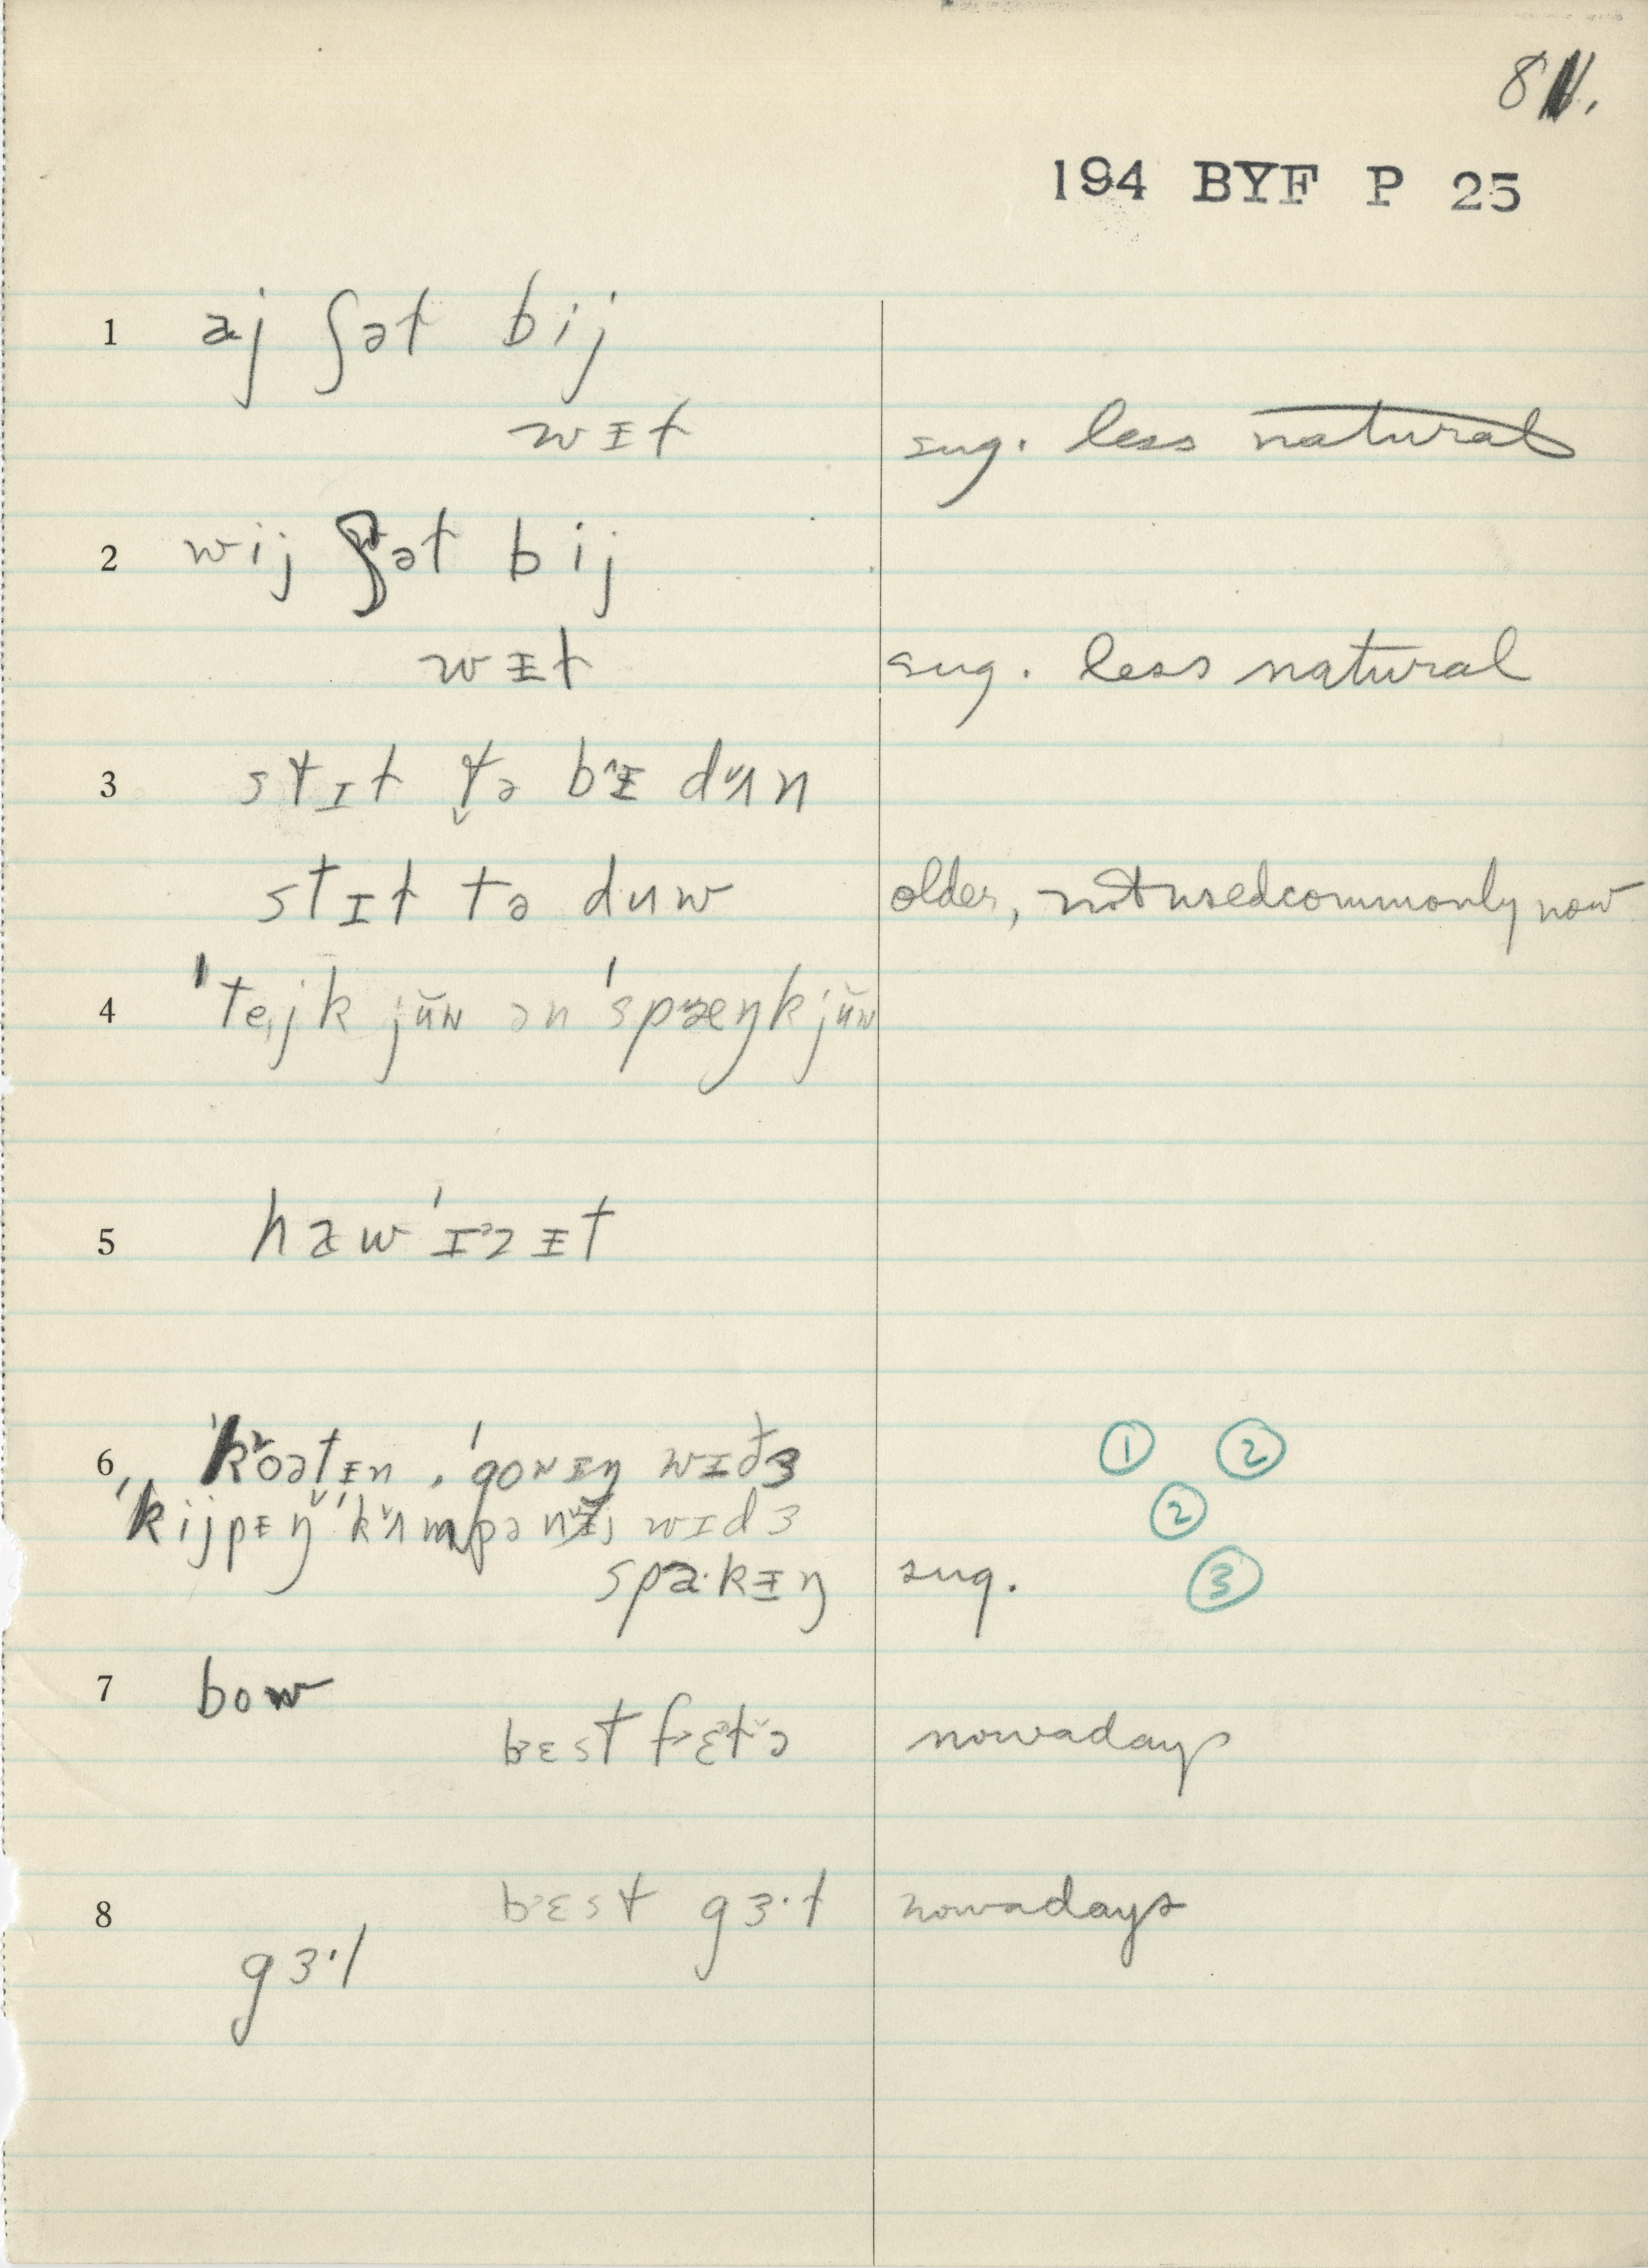 8
194 BYF P 25
1 aj ʃət bij
wɪt sug. less natural
2 wij ʃət bij
wɪ̵t sug. less natural
3 stɪt tə bɪ̵ dʌn
stɪt tə duw older, not used commonly now
4 ˈtejk jŭw ən ˈspæŋk jŭw
5 haw ˈɪzɪ̵t
6 ˈkoətɪ̵n, ˈgoɪ̵ŋ wɪðɜ ① ②
ˈkijpɪ̵ŋ ˈkʌmpənɪ̵j wɪdɜ ②
spa·kɪ̵ŋ sug. ③
7 bow
bɛst fɛtə nowadays
8 bɛst gɜ·t nowadays
gɜ·l